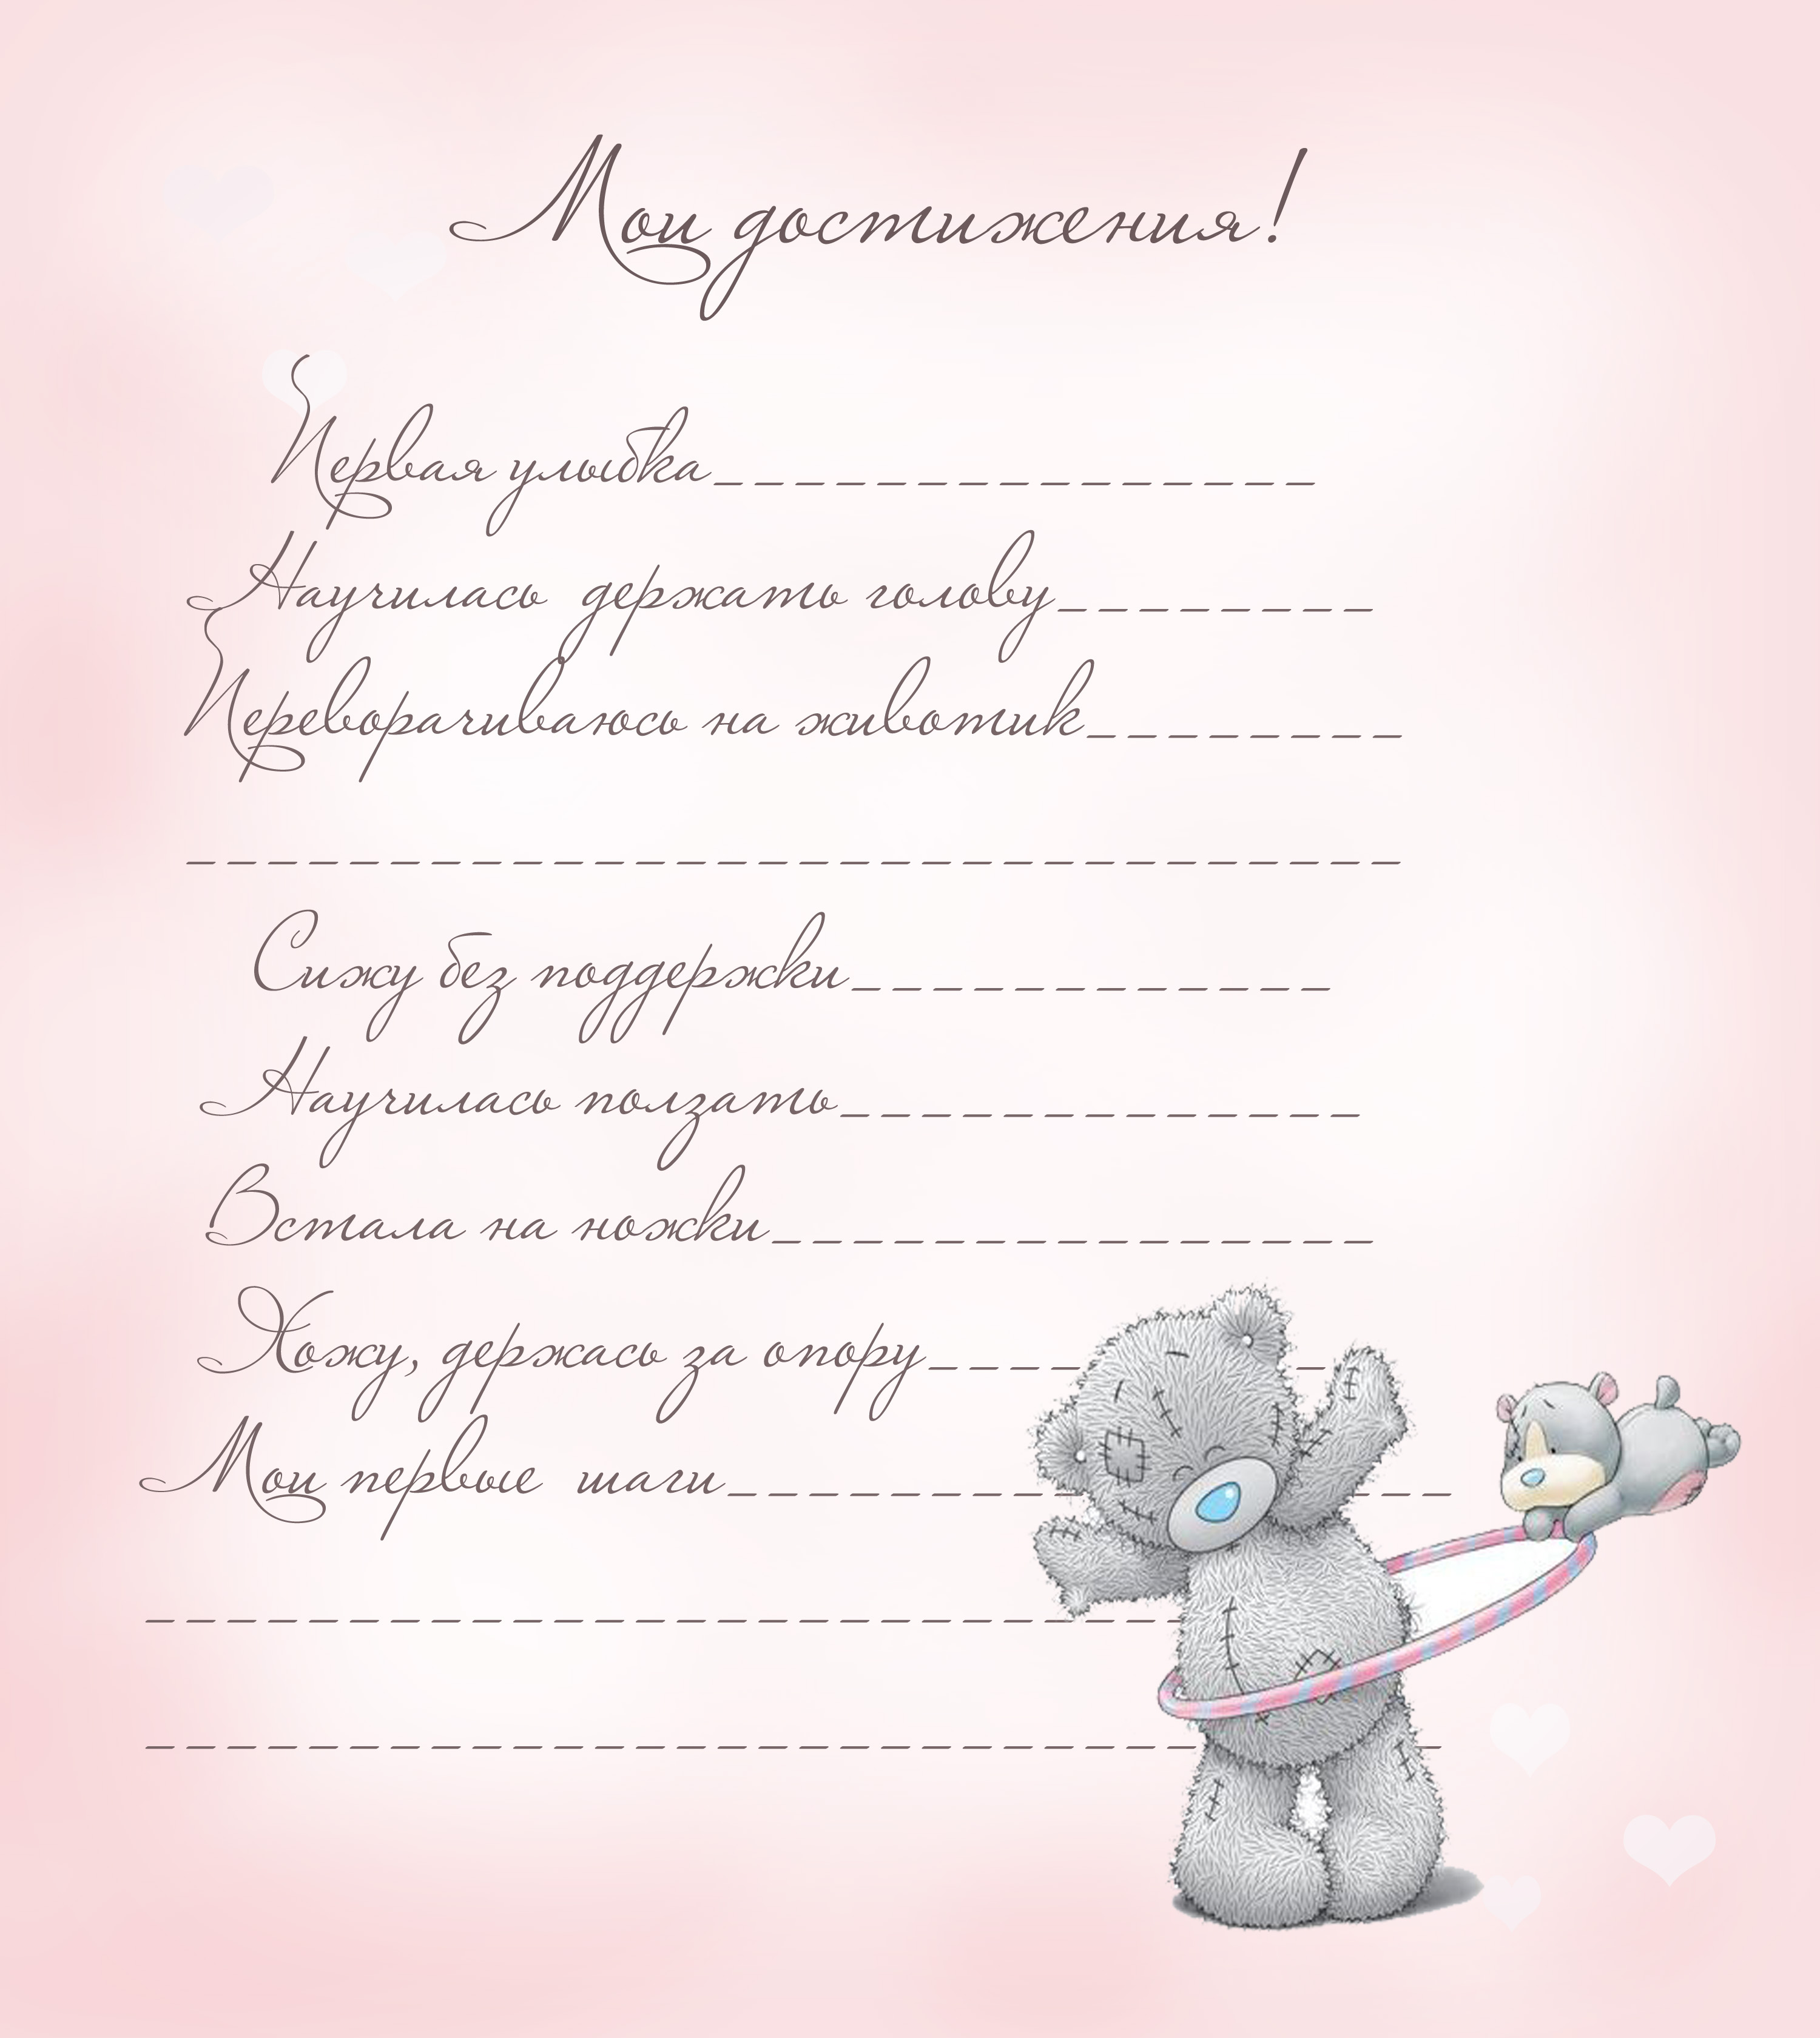 Мои достижения!
Первая улыбка_______________
Научилась держать голову________
Переворачиваюсь на животик________
______________________________
Сижу без поддержки____________
Научилась ползать_____________
Встала на ножки_______________
Хожу, держась за опору_____
Мои первые шаги___________
__________________________
___________________________